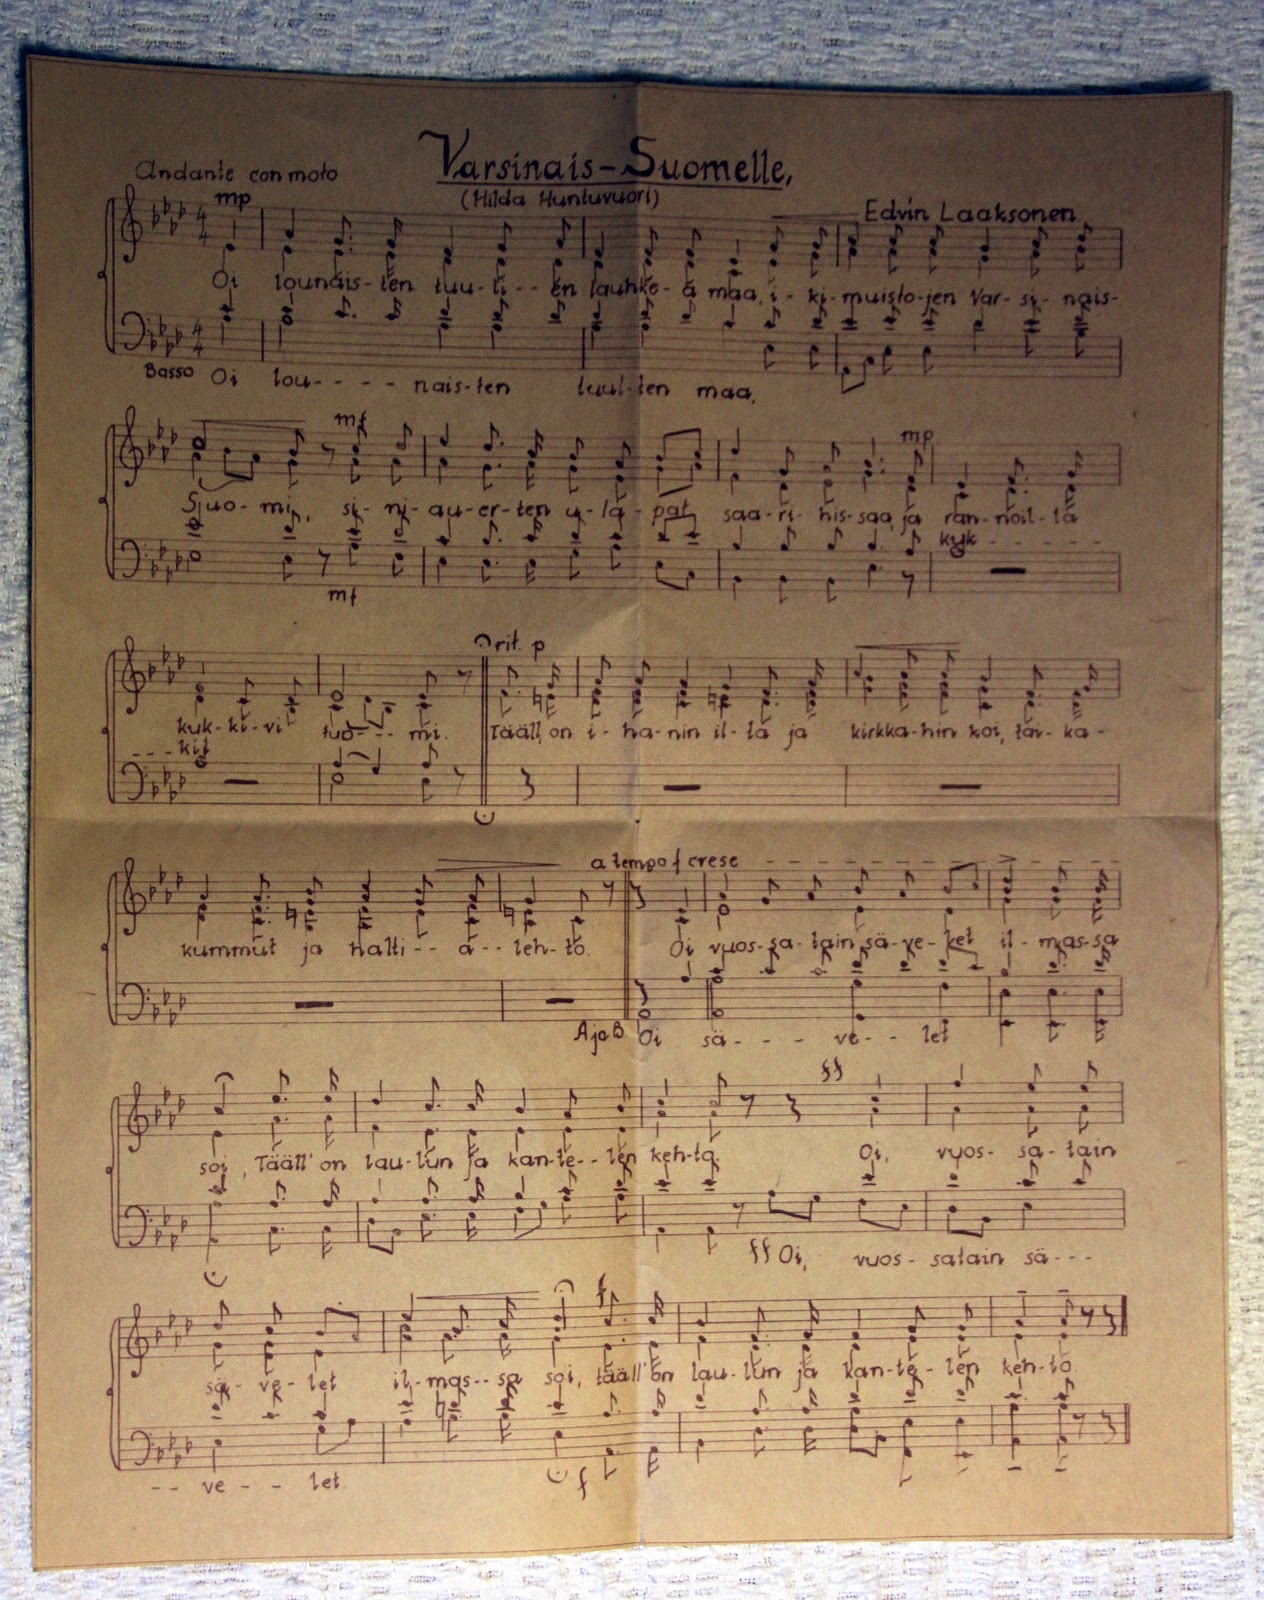 Varsinais-Suomelle,
Andante con moto
(Hilda Huntuvuori)
mp
Edvin Laaksonen
Oi lounais-ten tuu-li--en lauhke-a maa, i-ki-muisto-jen Var-si-nais-
Basso Oi lou---- nais-ten tuul-ten maa,
mf
mp
Suo-mi, si-ni-au-er-ten u-la-pat saa-ri-his-saa, ja ran-noil-la
kuk --------
mf
rit. p
kuk-ki-vi tuo--mi. Tääll' on i-ha-nin il-ta ja kirkka-hin koi, tai-ka-
---kit
a tempo f cresc -----------
kummut ja halti--a--leh-to. Oi vuos-sa-tain sä-ve-let il-mas-sa
A ja B Oi sä---- ve-- let
soi, Tääll' on lau-lun ja kan-te--len keh-to. Oi, vuos-sa-tain
ff
ff Oi, vuos-satain sä---
f
sä-ve-let il-mas--sa soi, tääll' on lau-lun ja kan-te-len keh-to.
-- ve--- let
f